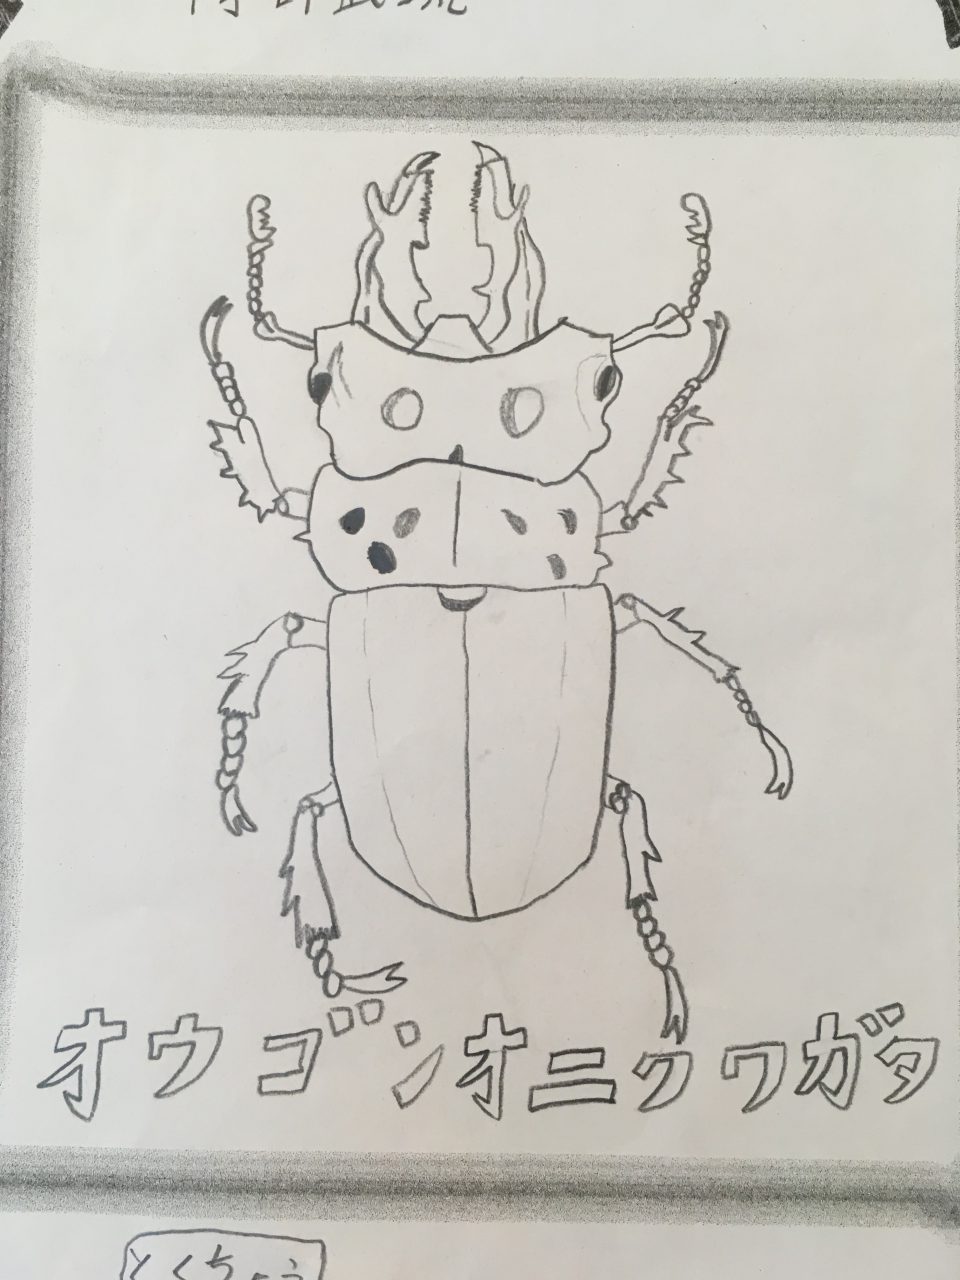 オウゴンオニクワガタ
とくちょう